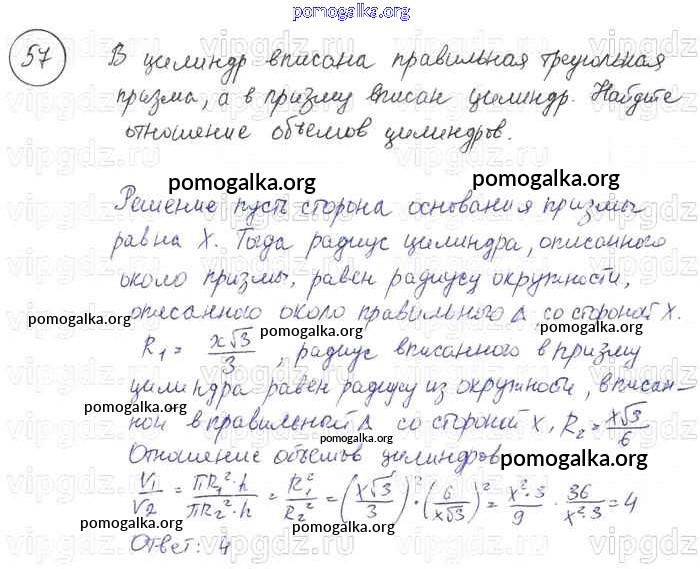 pomogalka.org
57 В цилиндр вписана правильная треугольная
призма, а в призму вписан цилиндр. Найдите
отношение объемов цилиндров.
pomogalka.org pomogalka.org
Решение пусть сторона основания призмы
равна X. Тогда радиус цилиндра, описанного
около призмы, равен радиусу окружности,
описанного около правильного Δ со стороной X.
pomogalka.org pomogalka.org pomogalka.org
R₁ = x√3/3, радиус вписанного в призму
цилиндра равен радиусу из окружности, вписан-
pomogalka.org pomogalka.org
ной в правильный Δ со стороной X, R₂ = x√3/6
pomogalka.org
Отношение объемов цилиндров
pomogalka.org
V₁/V₂ = πR₁²·h/πR₂²·h = R₁²/R₂² = (x√3/3)²·(6/x√3)² = x²·3/9 · 36/x²·3 = 4
pomogalka.org pomogalka.org pomogalka.org
Ответ: 4